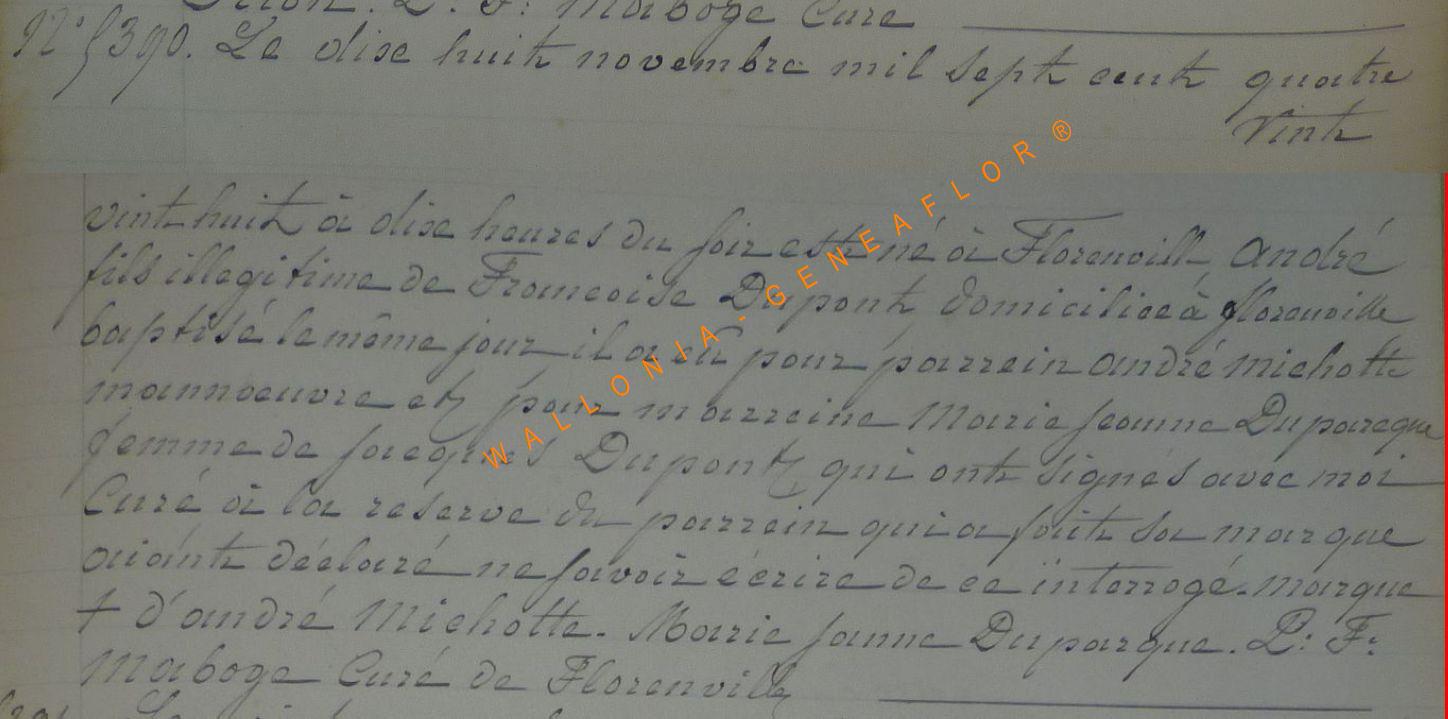 P. F. Maboge Curé
N° 5390. Le dixe huit novembre mil sept cent quatre
vint
vint huit à dixe heures du soir est né à Florenville André
fils illegitime de Francoise Dupont domiciliée à florenville
baptisé le même jour il a eu pour parrein andré michotte
mannoeuvre et pour marreine Marie Jeanne Duparcque
femme de Jacques Dupont qui ont signés avec moi
Curé à la reserve du parrein qui a fait sa marque
aiant déclaré ne savoir écrire de ce interrogé. marque
+ d'andré Michotte. Marie Janne Duparque. P: F:
Maboge Curé de Florenville
WALLONIA-GENEAFLOR ®